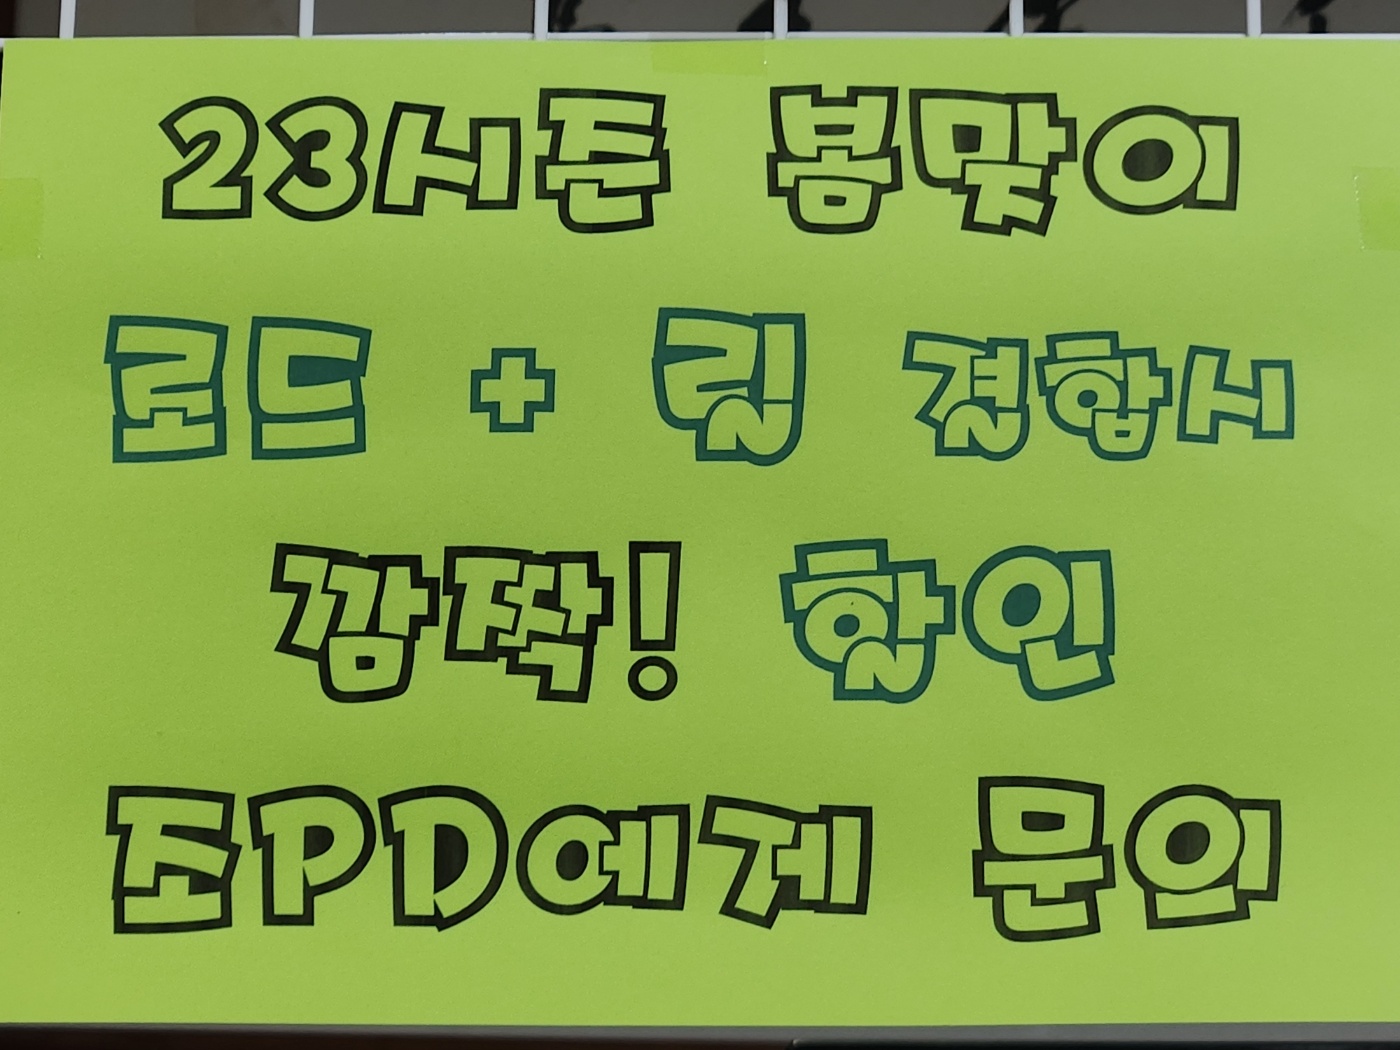 23시즌 봄맞이
로드 + 릴 결합시
깜짝! 할인
조PD에게 문의